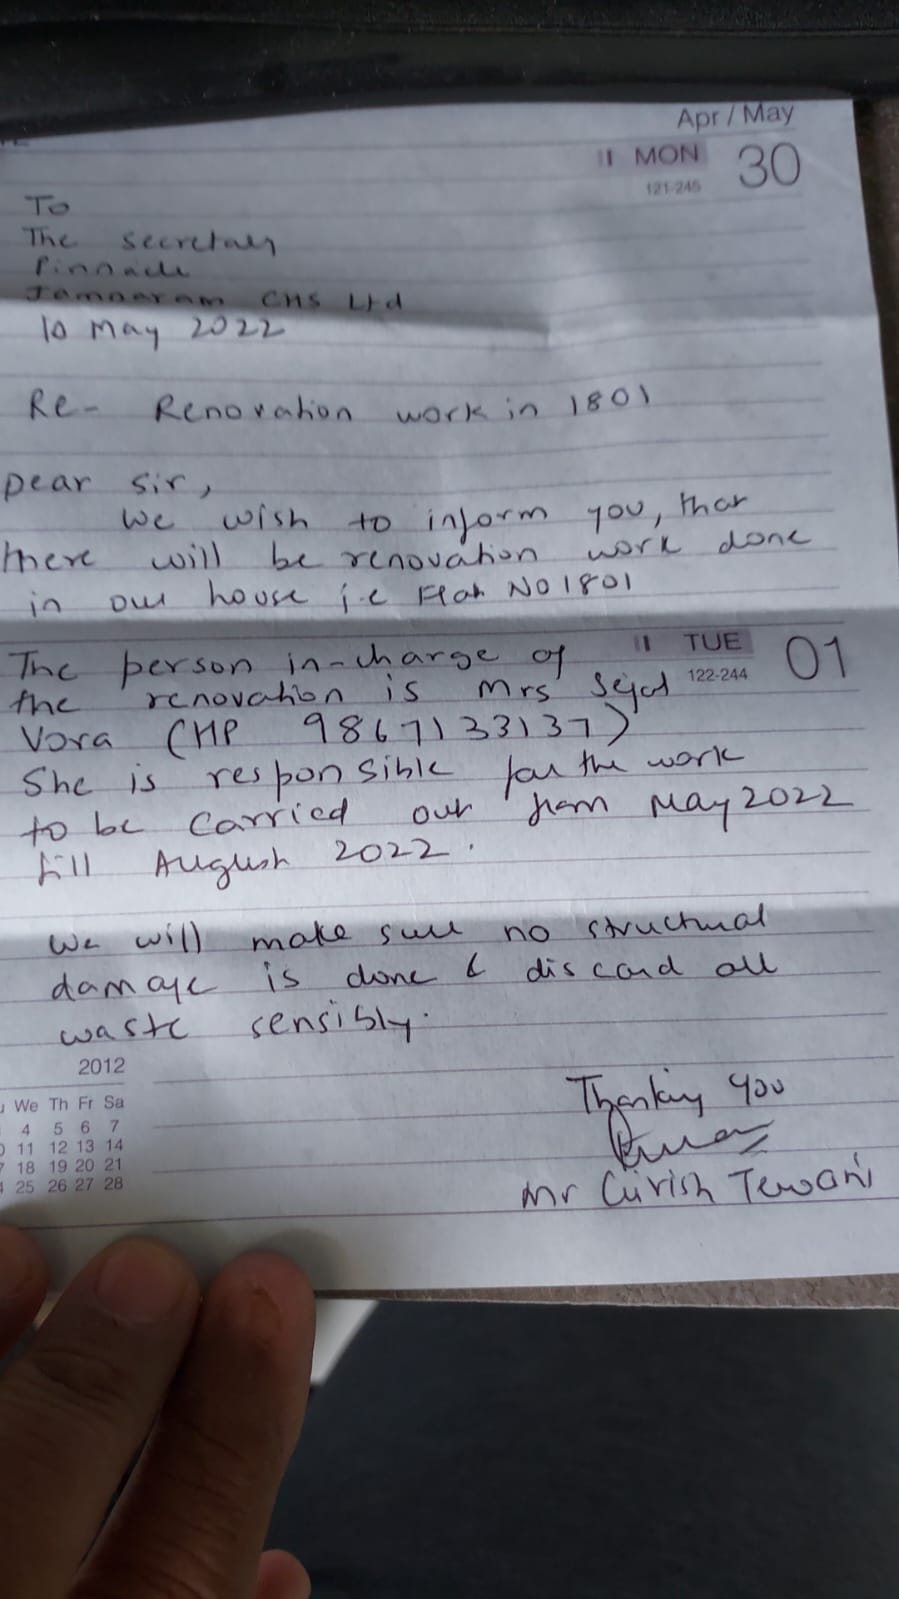 Apr / May
MON 30
121-245
To
The Secretary
Pinnacle
CHS Ltd
10 May 2022
Re- Renovation work in 1801
Dear Sir,
We wish to inform you, that
there will be renovation work done
in our house i.e Flat No 1801
TUE 01
122-244
The person in-charge of
the renovation is Mrs Sejal
Vora (HP 9867133137)
She is responsible for the work
to be carried out from May 2022
till August 2022.
We will make sure no structural
damage is done & discard all
waste sensibly.
2012
We Th Fr Sa
4 5 6 7
11 12 13 14
18 19 20 21
25 26 27 28
Thanking You
Mr Girish Tewani